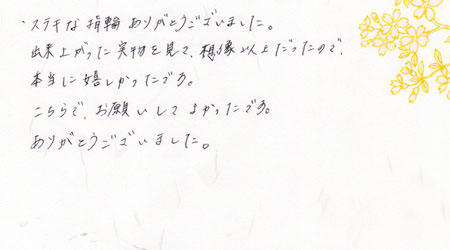 ・ステキな指輪ありがとうございました。
出来上がった実物を見て、想像以上だったので、
本当に嬉しかったです。
こちらで、お願いしてよかったです。
ありがとうございました。